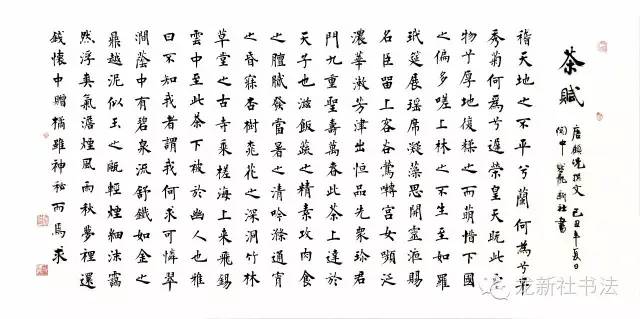 茶賦
唐顧況撰文 己丑年夏日
閩中 新社書
天地之不平兮蘭何為兮早
秀菊何為兮遲榮皇天既此靈
物兮厚地復糅之而萌惜下國
之偏多嗟上林之不生至如羅
玳筵展瑤席凝藻思開靈液賜
名臣留上客谷鶯囀宮女嚬泛
濃華漱芳津出恒品先衆珍君
門九重聖壽萬春此茶上達於
天子也滋飯蔬之精素攻肉食
之膻膩發當暑之清吟滌通宵
之昏寐杏樹桃花之深洞竹林
草堂之古寺乘槎海上來飛錫
雲中至此茶下被於幽人也雅
曰不知我者謂我何求可憐翠
澗蔭中有碧泉流舒鐵如金之
鼎越泥似玉之甌輕煙細沫靄
然浮爽氣澹煙風雨秋夢裡還
錢懷中贈橘雖神秘而焉求
龙新社书法